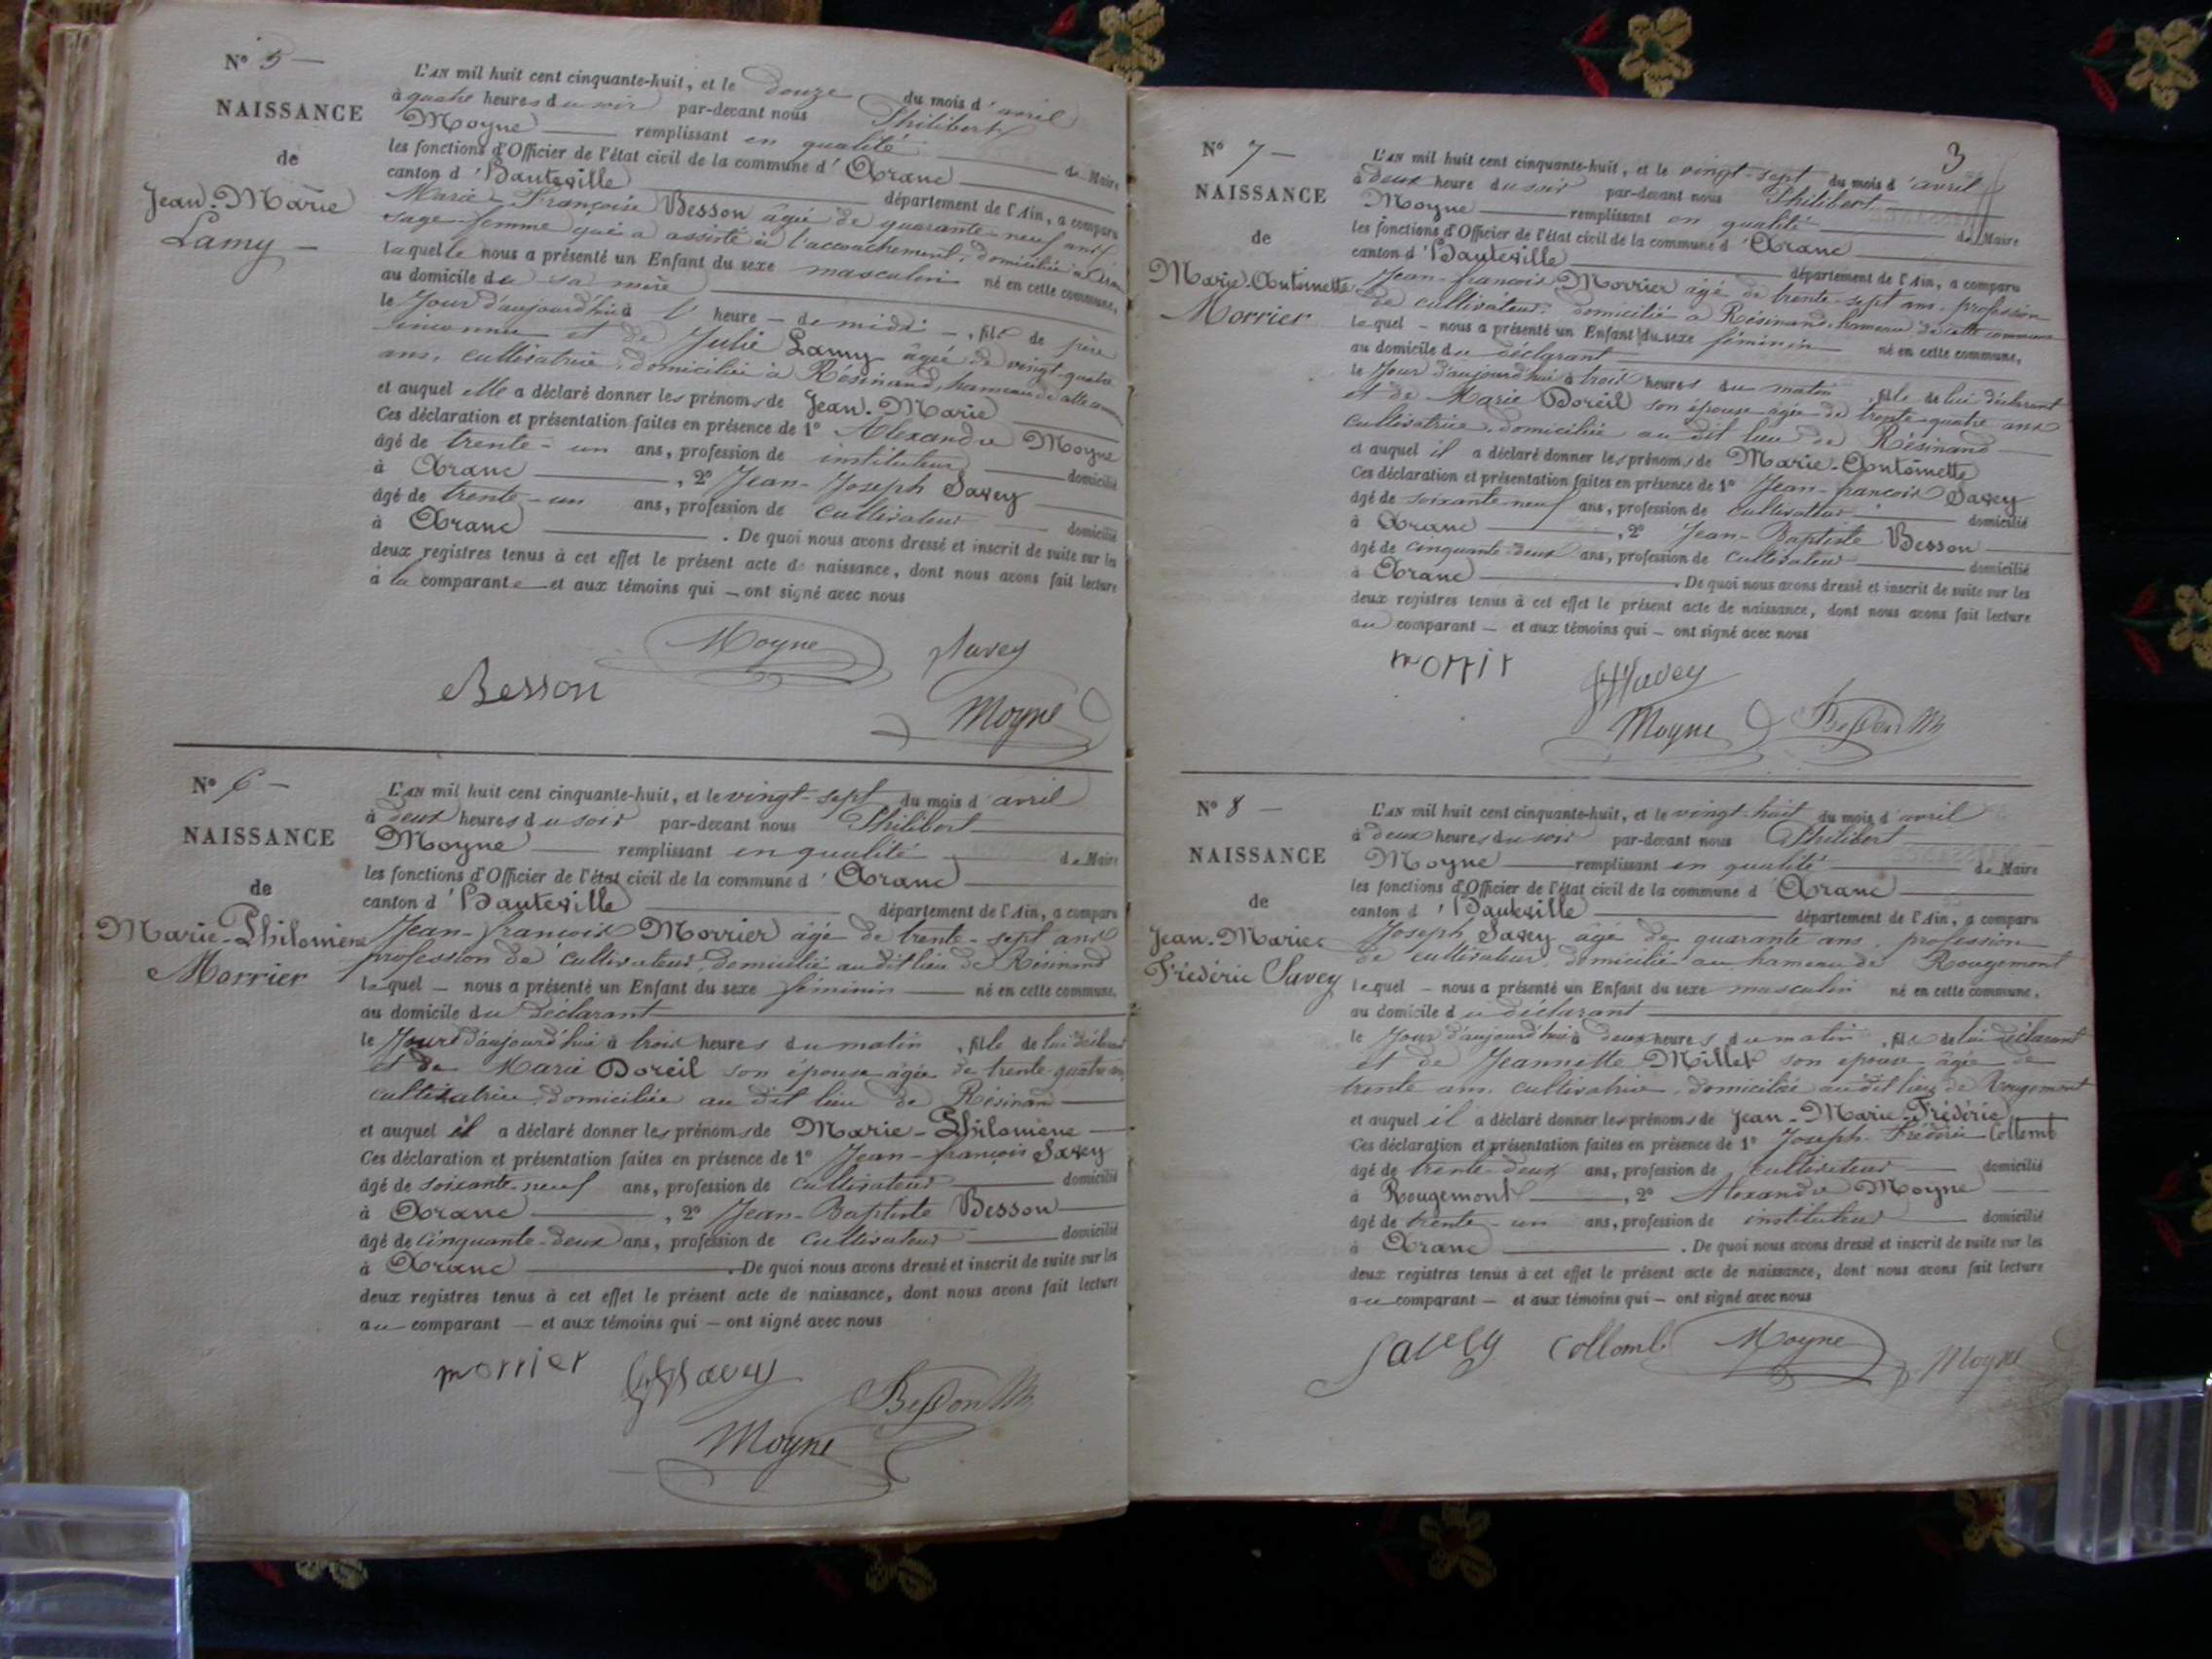 N° 5 —
NAISSANCE
de
Jean-Marie
Lamy —
L'AN mil huit cent cinquante-huit, et le douze du mois d'avril
à quatre heures du soir par-devant nous Philibert
Moyne — remplissant en qualité — de Maire
les fonctions d'Officier de l'état civil de la commune d'Aranc —
canton d'Hauteville — département de l'Ain, a comparu
Marie-Françoise Besson âgée de quarante-neuf ans
sage-femme qui a assisté à l'accouchement, domiciliée à Aranc
laquelle nous a présenté un Enfant du sexe masculin né en cette commune,
au domicile de sa mère —
le Jour d'aujourd'hui à l' heure — de midi —, fils de père
inconnu et de Julie Lamy âgée de vingt-quatre
ans, cultivatrice, domiciliée à Résinand, hameau de cette commune
et auquel elle a déclaré donner les prénoms de Jean-Marie —
Ces déclaration et présentation faites en présence de 1° Alexandre Moyne
âgé de trente-un ans, profession de instituteur — domicilié
à Aranc —, 2° Jean-Joseph Savey —
âgé de trente-un ans, profession de cultivateur — domicilié
à Aranc — . De quoi nous avons dressé et inscrit de suite sur les
deux registres tenus à cet effet le présent acte de naissance, dont nous avons fait lecture
à la comparante et aux témoins qui — ont signé avec nous
Moyne Savey
Besson
Moyne
N° 6 —
NAISSANCE
de
Marie-Philomène
Morrier
L'AN mil huit cent cinquante-huit, et le vingt-sept du mois d'avril
à deux heures du soir par-devant nous Philibert —
Moyne — remplissant en qualité — de Maire
les fonctions d'Officier de l'état civil de la commune d'Aranc —
canton d'Hauteville — département de l'Ain, a comparu
Jean-françois Morrier âgé de trente-sept ans
profession de cultivateur, domicilié audit lieu de Résinand
lequel — nous a présenté un Enfant du sexe féminin — né en cette commune,
au domicile du déclarant —
le Jour d'aujourd'hui à trois heures du matin, fille de lui déclarant
et de Marie Doreil son épouse âgée de trente-quatre ans
cultivatrice, domiciliée au dit lieu de Résinand —
et auquel il a déclaré donner les prénoms de Marie-Philomène —
Ces déclaration et présentation faites en présence de 1° Jean-françois Savey
âgé de soixante-neuf ans, profession de cultivateur — domicilié
à Aranc —, 2° Jean-Baptiste Besson —
âgé de cinquante-deux ans, profession de cultivateur — domicilié
à Aranc — . De quoi nous avons dressé et inscrit de suite sur les
deux registres tenus à cet effet le présent acte de naissance, dont nous avons fait lecture
au comparant — et aux témoins qui — ont signé avec nous
morrier Savey
Besson
Moyne
3
N° 7 —
NAISSANCE
de
Marie-Antoinette
Morrier
L'AN mil huit cent cinquante-huit, et le vingt-sept du mois d'avril
à deux heure du soir par-devant nous Philibert
Moyne — remplissant en qualité — de Maire
les fonctions d'Officier de l'état civil de la commune d'Aranc —
canton d'Hauteville — département de l'Ain, a comparu
Jean-françois Morrier âgé de trente-sept ans, profession
de cultivateur, domicilié à Résinand, hameau de cette commune
lequel — nous a présenté un Enfant du sexe féminin — né en cette commune,
au domicile du déclarant —
le Jour d'aujourd'hui à trois heures du matin, fille de lui déclarant
et de Marie Doreil son épouse âgée de trente-quatre ans
cultivatrice, domiciliée au dit lieu de Résinand —
et auquel il a déclaré donner les prénoms de Marie-Antoinette
Ces déclaration et présentation faites en présence de 1° Jean-françois Savey
âgé de soixante-neuf ans, profession de cultivateur — domicilié
à Aranc —, 2° Jean-Baptiste Besson —
âgé de cinquante-deux ans, profession de cultivateur — domicilié
à Aranc — . De quoi nous avons dressé et inscrit de suite sur les
deux registres tenus à cet effet le présent acte de naissance, dont nous avons fait lecture
au comparant — et aux témoins qui — ont signé avec nous
Savey
Moyne Besson
N° 8 —
NAISSANCE
de
Jean-Marie
Frédéric Savey
L'AN mil huit cent cinquante-huit, et le vingt-huit du mois d'avril
à deux heures du soir par-devant nous Philibert —
Moyne — remplissant en qualité — de Maire
les fonctions d'Officier de l'état civil de la commune d'Aranc —
canton d'Hauteville — département de l'Ain, a comparu
Joseph Savey âgé de quarante ans, profession
de cultivateur, domicilié au hameau de Rougemont
lequel — nous a présenté un Enfant du sexe masculin né en cette commune,
au domicile du déclarant —
le Jour d'aujourd'hui à deux heures du matin, fils de lui déclarant
et de Jeannette Millet son épouse âgée de
trente ans, cultivatrice, domiciliée au dit lieu de Rougemont
et auquel il a déclaré donner les prénoms de Jean-Marie-Frédéric
Ces déclaration et présentation faites en présence de 1° Joseph-Frédéric Collomb
âgé de trente-deux ans, profession de cultivateur — domicilié
à Rougemont —, 2° Alexandre Moyne —
âgé de trente-un ans, profession de instituteur — domicilié
à Aranc — . De quoi nous avons dressé et inscrit de suite sur les
deux registres tenus à cet effet le présent acte de naissance, dont nous avons fait lecture
au comparant — et aux témoins qui — ont signé avec nous
Savey Collomb Moyne Moyne